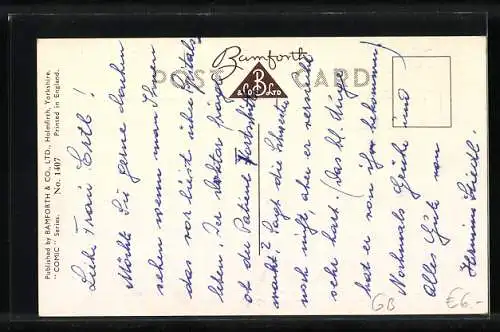 Published by BAMFORTH & CO., LTD., Holmfirth, Yorkshire.
"COMIC" Series. No. 1407 Printed in England.
Bamforth
POST CARD
B
& Co LTD
Liebe Frau Ertl!
Möchte Sie gerne lachen
sehen wenn man Ihnen
das vorliest über Spitals-
leben. Der Doktor fragt
ob der Patient Fortschritte
macht? Sagt die Schwester
noch nicht, aber er versucht
sehr hart. (Das kl. Luder
hat er von ihr bekommen)
Nochmals Grüße und
alles Gute von
Hermine
GB
€6.-